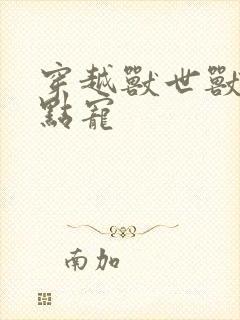 穿越獸世獸
點寵
南加